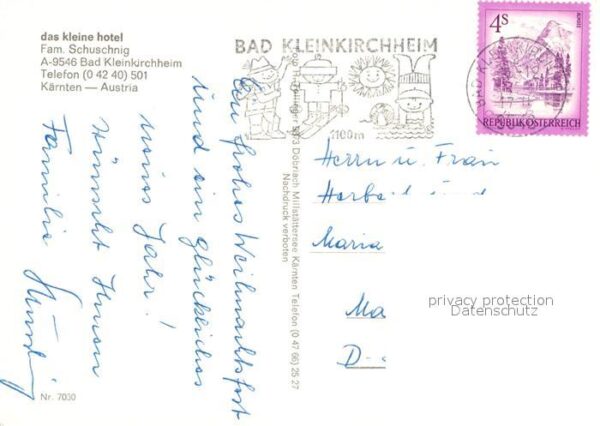 das kleine hotel
Fam. Schuschnig
A-9546 Bad Kleinkirchheim
Telefon (0 42 40) 501
Kärnten — Austria
Ein frohes Weihnachtsfest
und ein glückliches
neues Jahr!
wünscht Ihnen
Familie
Nr. 7030
9873 Döbriach Millstättersee Kärnten Telefon (0 47 66) 25 27
Nachdruck verboten
BAD KLEINKIRCHHEIM
1100m
4S
REPUBLIK ÖSTERREICH
BAD KLEINKIRCH
Herrn u. Frau
Herbert
Maria
Ma
D-
privacy protection
Datenschutz